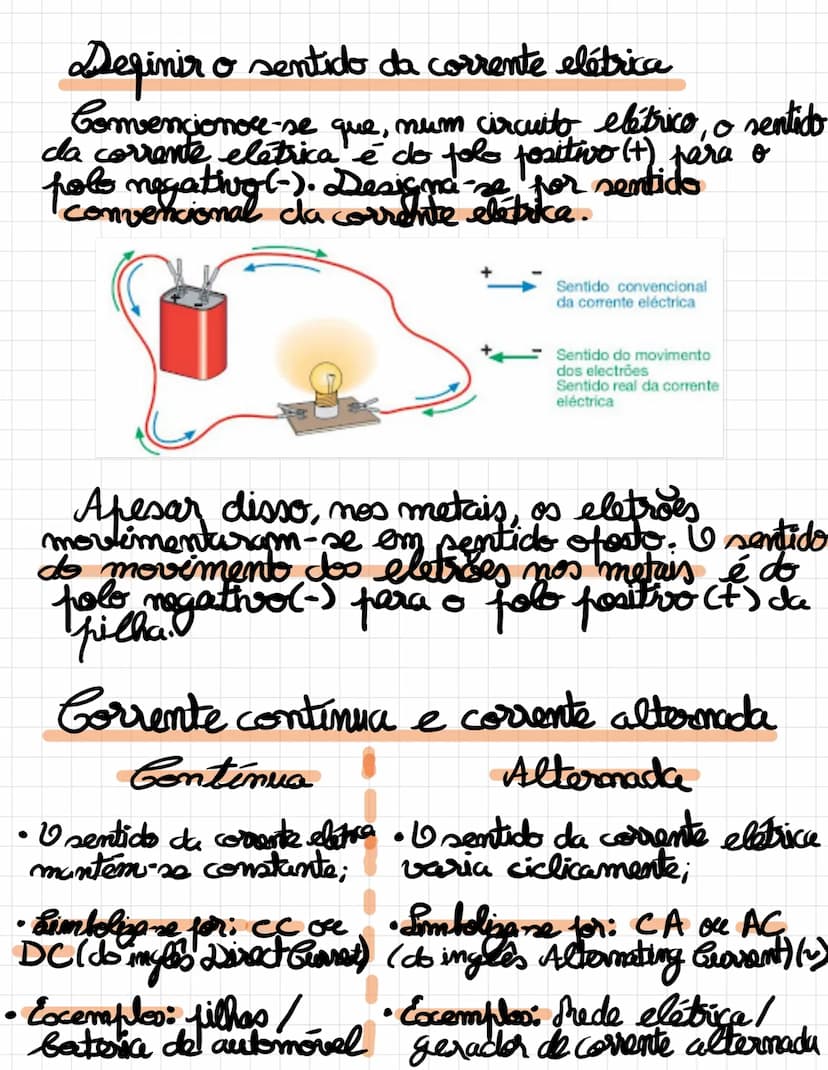 Definir o sentido da corrente elétrica
Convencionou-se que, num circuito elétrico, o sentido
da corrente elétrica é do polo positivo (+) para o
polo negativo (-). Designa-se por sentido
convencional da corrente elétrica.
+ -
Sentido convencional
da corrente eléctrica
+ -
Sentido do movimento
dos electrões
Sentido real da corrente
eléctrica
+ -
Apesar disso, nos metais, os eletrões
movimentaram-se em sentido oposto. O sentido
do movimento dos eletrões nos metais é do
polo negativo (-) para o polo positivo (+) da
pilha.
Corrente contínua e corrente alternada
Contínua
• O sentido da corrente elétrica
mantém-se constante;
• Simboliza-se por: CC ou
DC (do inglês Direct Current)
• Exemplos: pilhas /
bateria de automóvel
Alternada
• O sentido da corrente elétrica
varia ciclicamente;
• Simboliza-se por: CA ou AC
(do inglês Alternating Current) (~)
• Exemplos: Rede elétrica /
gerador de corrente alternada